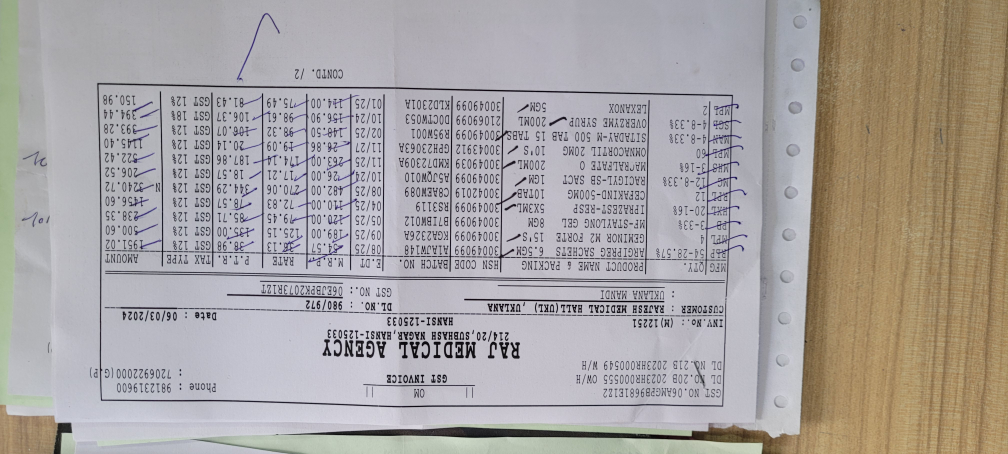 || OM ||
GST INVOICE
GST NO.06AMGPB9681E1Z2 Phone : 9812319600
DL NO.20B 2023HR000555 OW/H : 7206922000(G.P)
DL NO.21B 2023HR000549 W/H
RAJ MEDICAL AGENCY
214/20,SUBHASH NAGAR,HANSI-125033
HANSI-125033
INV.No.: (M)12251 Date : 06/03/2024
CUSTOMER : RAJESH MEDICAL HALL(UKL) , UKLANA DL.NO. : 980/972
: UKLANA MANDI GST NO.: 06EJBPK2073R1ZT
MFG QTY. PRODUCT NAME & PACKING HSN CODE BATCH NO. E.DT M.R.P. RATE P.T.R. TAX TYPE AMOUNT
54-28.57% ARCIPREG SACHETS 6.5GM 30049099 A1AJW148 08/25 38.98 GST 12% 1951.02
MPL 4 GEMINOR M2 FORTE 15'S 30049099 KGA2326A 05/25 189.00 125.15 135.00 GST 12% 500.60
PB 3-33% MF-STAYLONG GEL 8GM 30049099 BT7IBW012 05/25 120.00 79.45 85.71 GST 12% 238.35
HXL 20-16% IPRAZEST-RESP 5X3ML 30049099 RS3119 04/25 110.00 72.83 78.57 GST 12% 1456.60
RPL 12 CEPAKIND-500MG 10TAB 30042019 C8AEM089 08/25 482.00 270.06 344.29 GST 12% N 3240.72
MC 12-8.33% RACIGYL-SB SACT 1GM 30049099 A5TQN010W 10/24 26.00 17.21 18.57 GST 12% 206.52
MRS 3-16% MACRALFATE O 200ML 30049039 KM0723029A 11/25 263.00 174.14 187.86 GST 12% 522.42
MPL 60 OMNACORTIL 20MG 10'S 30043912 GPH23063A 11/27 19.09 20.14 GST 12% 1145.40
MAN 4-8.33% SITADAY-M-500 TAB 15 TABS 30049099 R95W001 02/25 148.50 98.32 106.07 GST 12% 393.28
SGB 4-8.33% OVERZYME SYRUP 200ML 21069099 DOCTW053 10/24 156.90 98.61 106.37 GST 18% 394.44
MPL 2 LEXANOX 5GM 30049099 KLD2301A 01/25 114.00 75.49 81.43 GST 12% 150.98
CONTD. /2